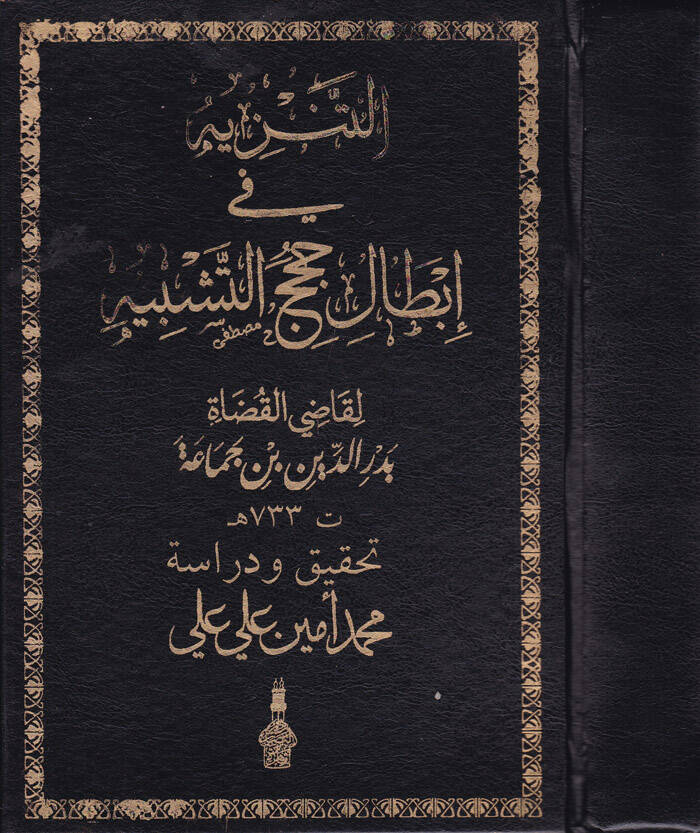 التَّنْزِيهُ
في
إِبْطَالِ حُجَجِ التَّشْبِيهِ
مصطفى
لِقَاضِي القُضَاةِ
بَدْرِ الدِّينِ بْنِ جَمَاعَةَ
ت ٧٣٣هـ
تحقيق ودراسة
محمد أمين علي علي